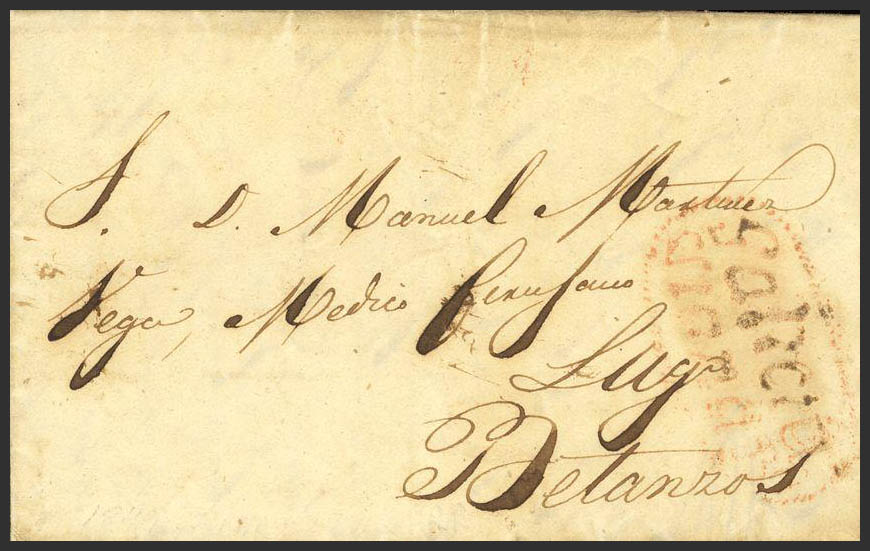 S. D. Manuel Martinez
Vega, Medico Cirujano
Lugo
Betanzos